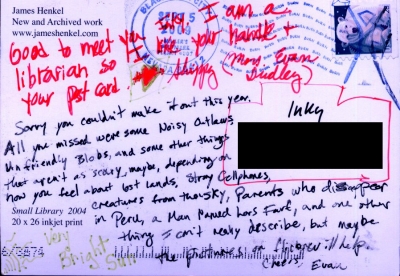 James Henkel
New and Archived work
www.jameshenkel.com
2009
Good to meet you Inky I am a
librarian so I like your handle
your post card.
(Mary Evans
Dudley)
Sorry you couldn't make it out this year.
All you missed were some Noisy Outlaws,
Unfriendly Blobs, and some other things
that aren't as scary, maybe, depending on
how you feel about lost lands, Stray Cellphones,
creatures from the sky, Parents who disappear
in Peru, a Man Named Lars Farf, and one other
thing I can't really describe, but maybe
the pictures or stickers will help.
Cheers, Evan
Inky
Small Library 2004
20 x 26 inkjet print
Very
Bright
Sun